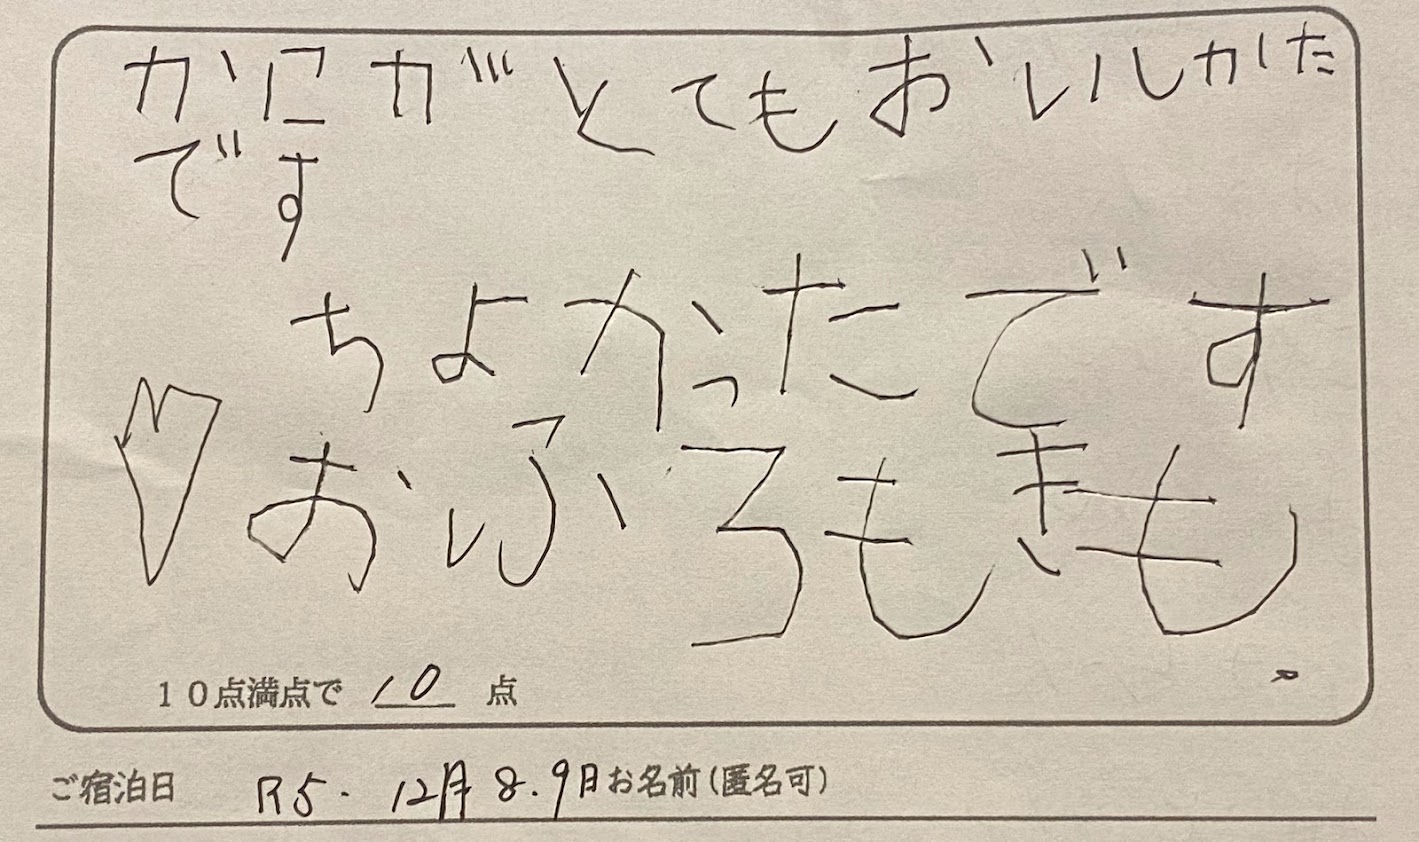 かにがとてもおいしかた
です
ちよかったです
おふろもきも
。
10点満点で 10 点
ご宿泊日 R5. 12月8.9日 お名前(匿名可)